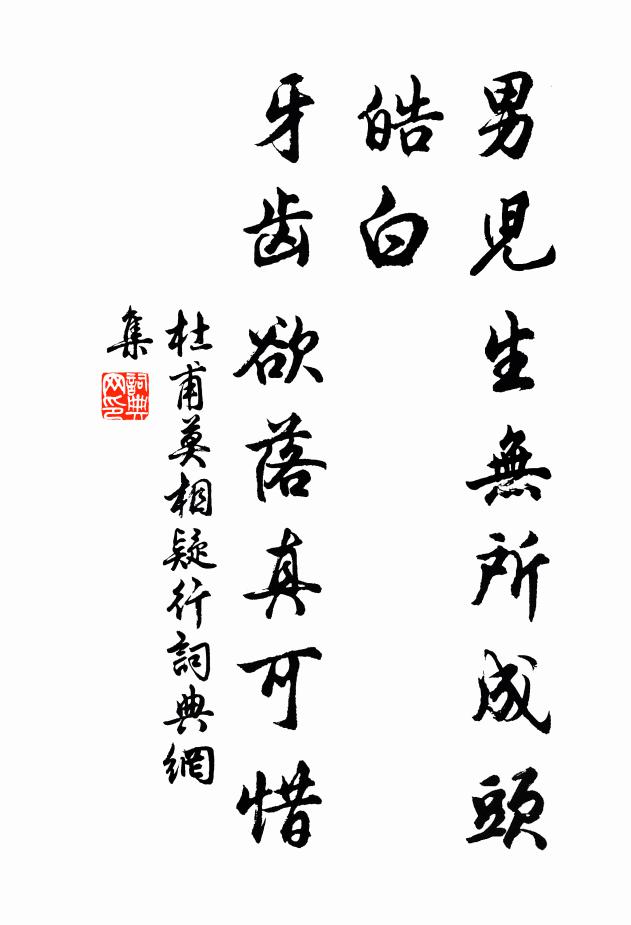 男児生無所成頭
皓白
牙齿欲落真可惜
杜甫莫相疑行詞典網
集
詞典
网印